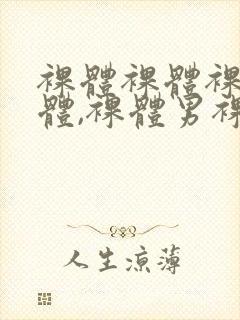 裸體裸體裸
體,裸體男裸
人生涼薄